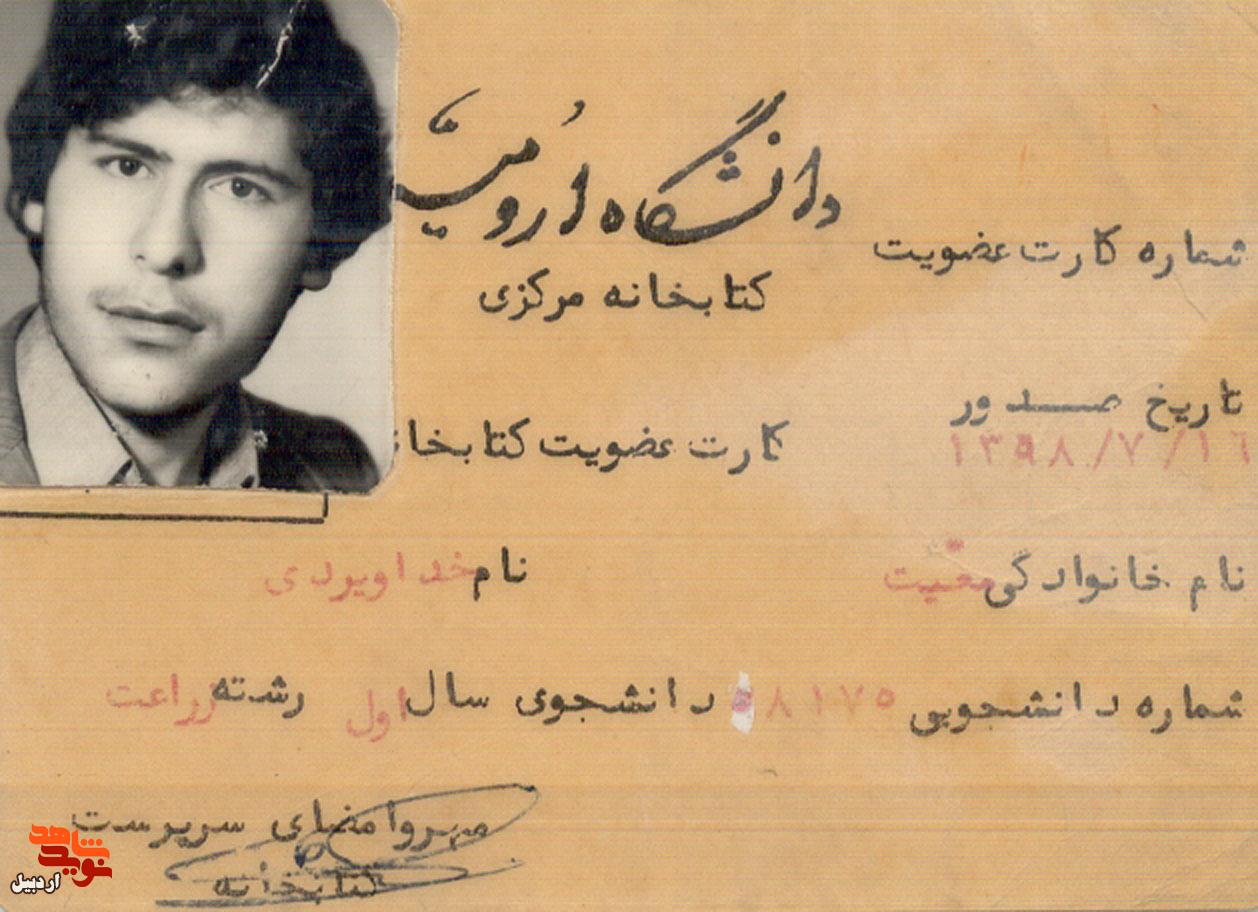 دانشگاه ارومیه
کتابخانه مرکزی
شماره کارت عضویت
تاریخ صدور
۱۳۹۸/۷/۱۶
کارت عضویت کتابخانه
نام خانوادگی نام خداویردی
شماره دانشجویی ۵۸۱۷۵ دانشجوی سال اول رشته زراعت
مهر و امضای سرپرست
کتابخانه
نوید شاهد
اردبیل